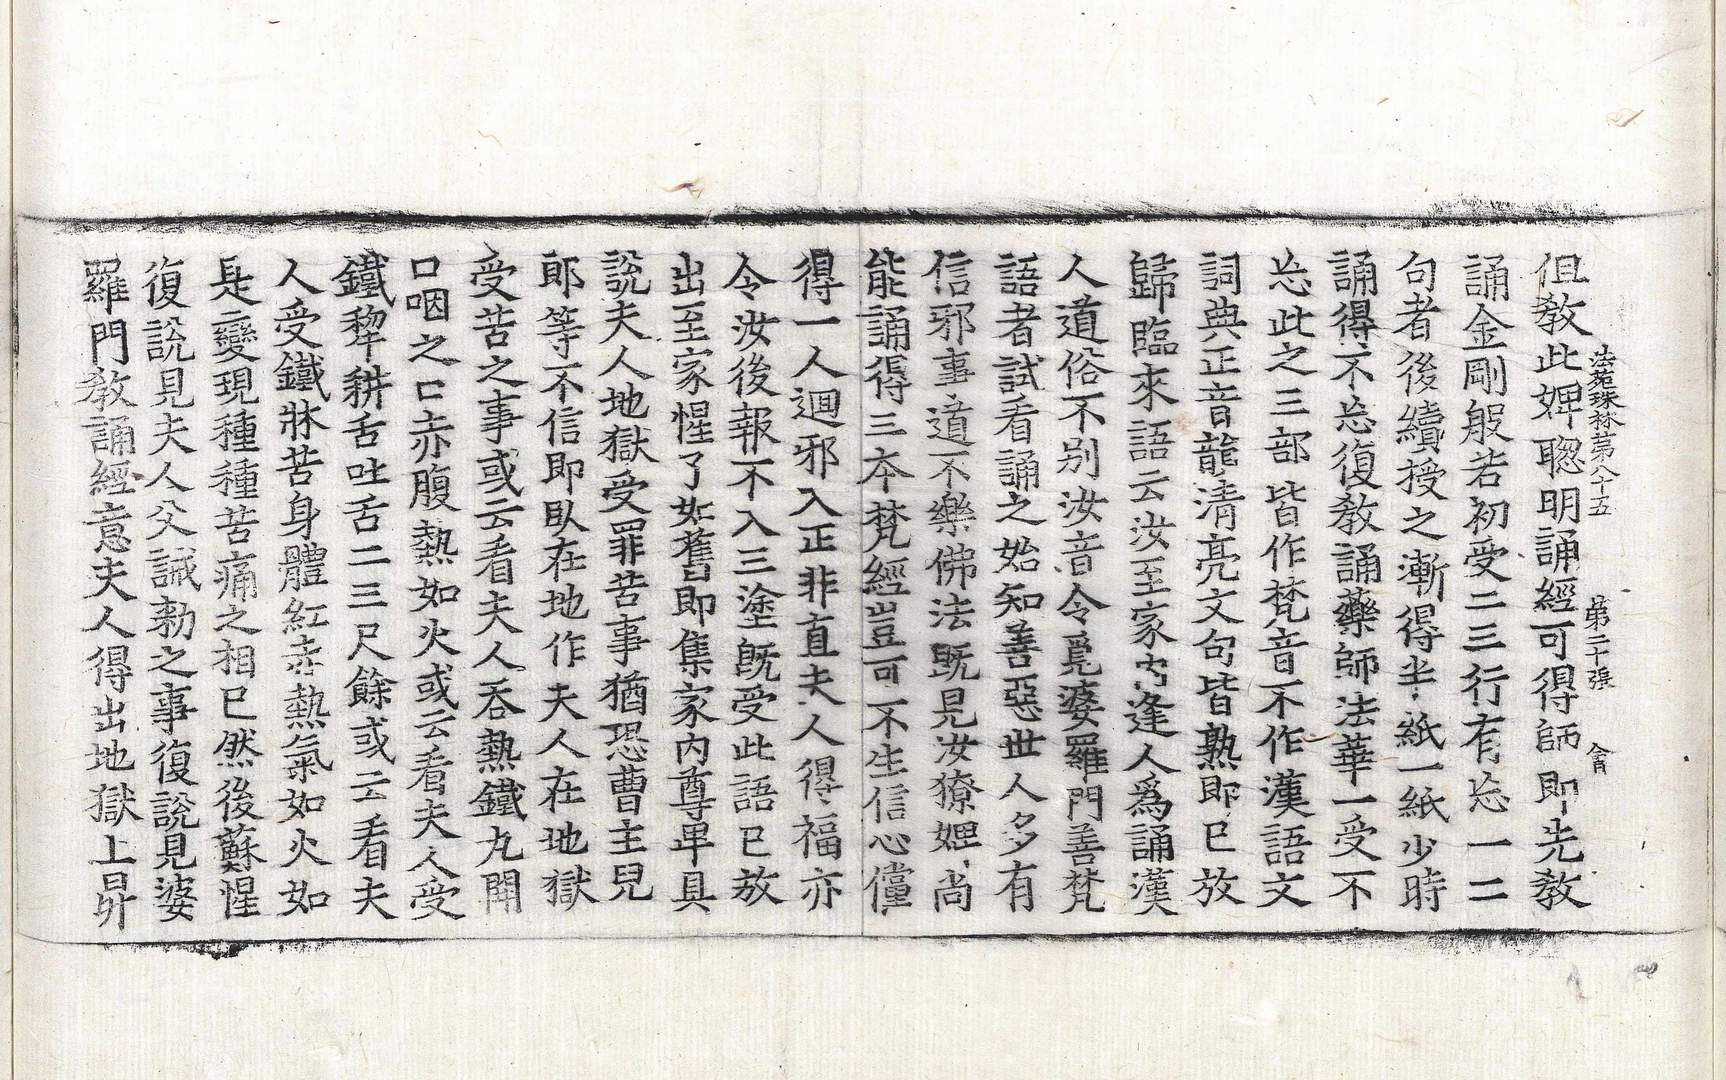 法苑珠林第八十五 第二十張 禽
但敎此婢聦明誦經可得師即先敎
誦金剛般若初受二三行有忘一二
句者後續授之漸得半紙一紙少時
誦得不忘復敎誦藥師法華一受不
忘此之三部皆作梵音不作漢語文
詞典正音龍清亮文句皆熟即巳放
歸臨來語云汝至家內逢人爲誦漢
人道俗不别汝音令覓婆羅門善梵
語者試看誦之始知善惡世人多有
信邪事道不樂佛法旣見汝獠婢尚
能誦得三本梵經豈可不生信心儻
得一人迴邪入正非直夫人得福亦
令汝後報不入三塗旣受此語巳放
出至家惺了如舊即集家內尊卑具
說夫人地獄受罪苦事猶恐曹主兒
郎等不信即臥在地作夫人在地獄
受苦之事或云看夫人吞熱鐵丸開
口咽之口赤腹熱如火或云看夫人受
鐵犂耕舌吐舌二三尺餘或云看夫
人受鐵牀苦身體紅赤熱氣如火如
是變現種種苦痛之相巳然後蘇惺
復說見夫人父誡勑之事復說見婆
羅門敎誦經意夫人得出地獄上昇